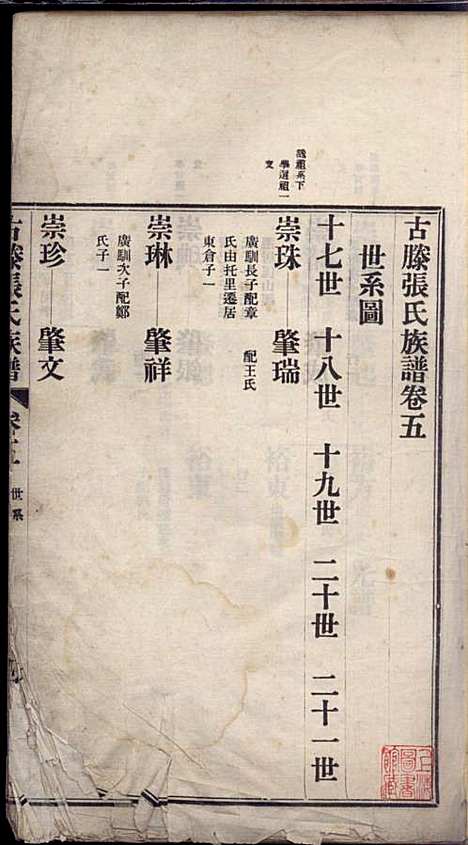 古滕張氏族譜卷五
世系圖
十七世 十八世 十九世 二十世 二十一世
學遜祖一
支
崇珠 肇瑞
廣馴長子配章
氏由托里遷居
東倉子一
配王氏
崇琳 肇祥
廣馴次子配鄭
氏子一
崇珍 肇文
古滕張氏族譜 卷五 世系
圖書